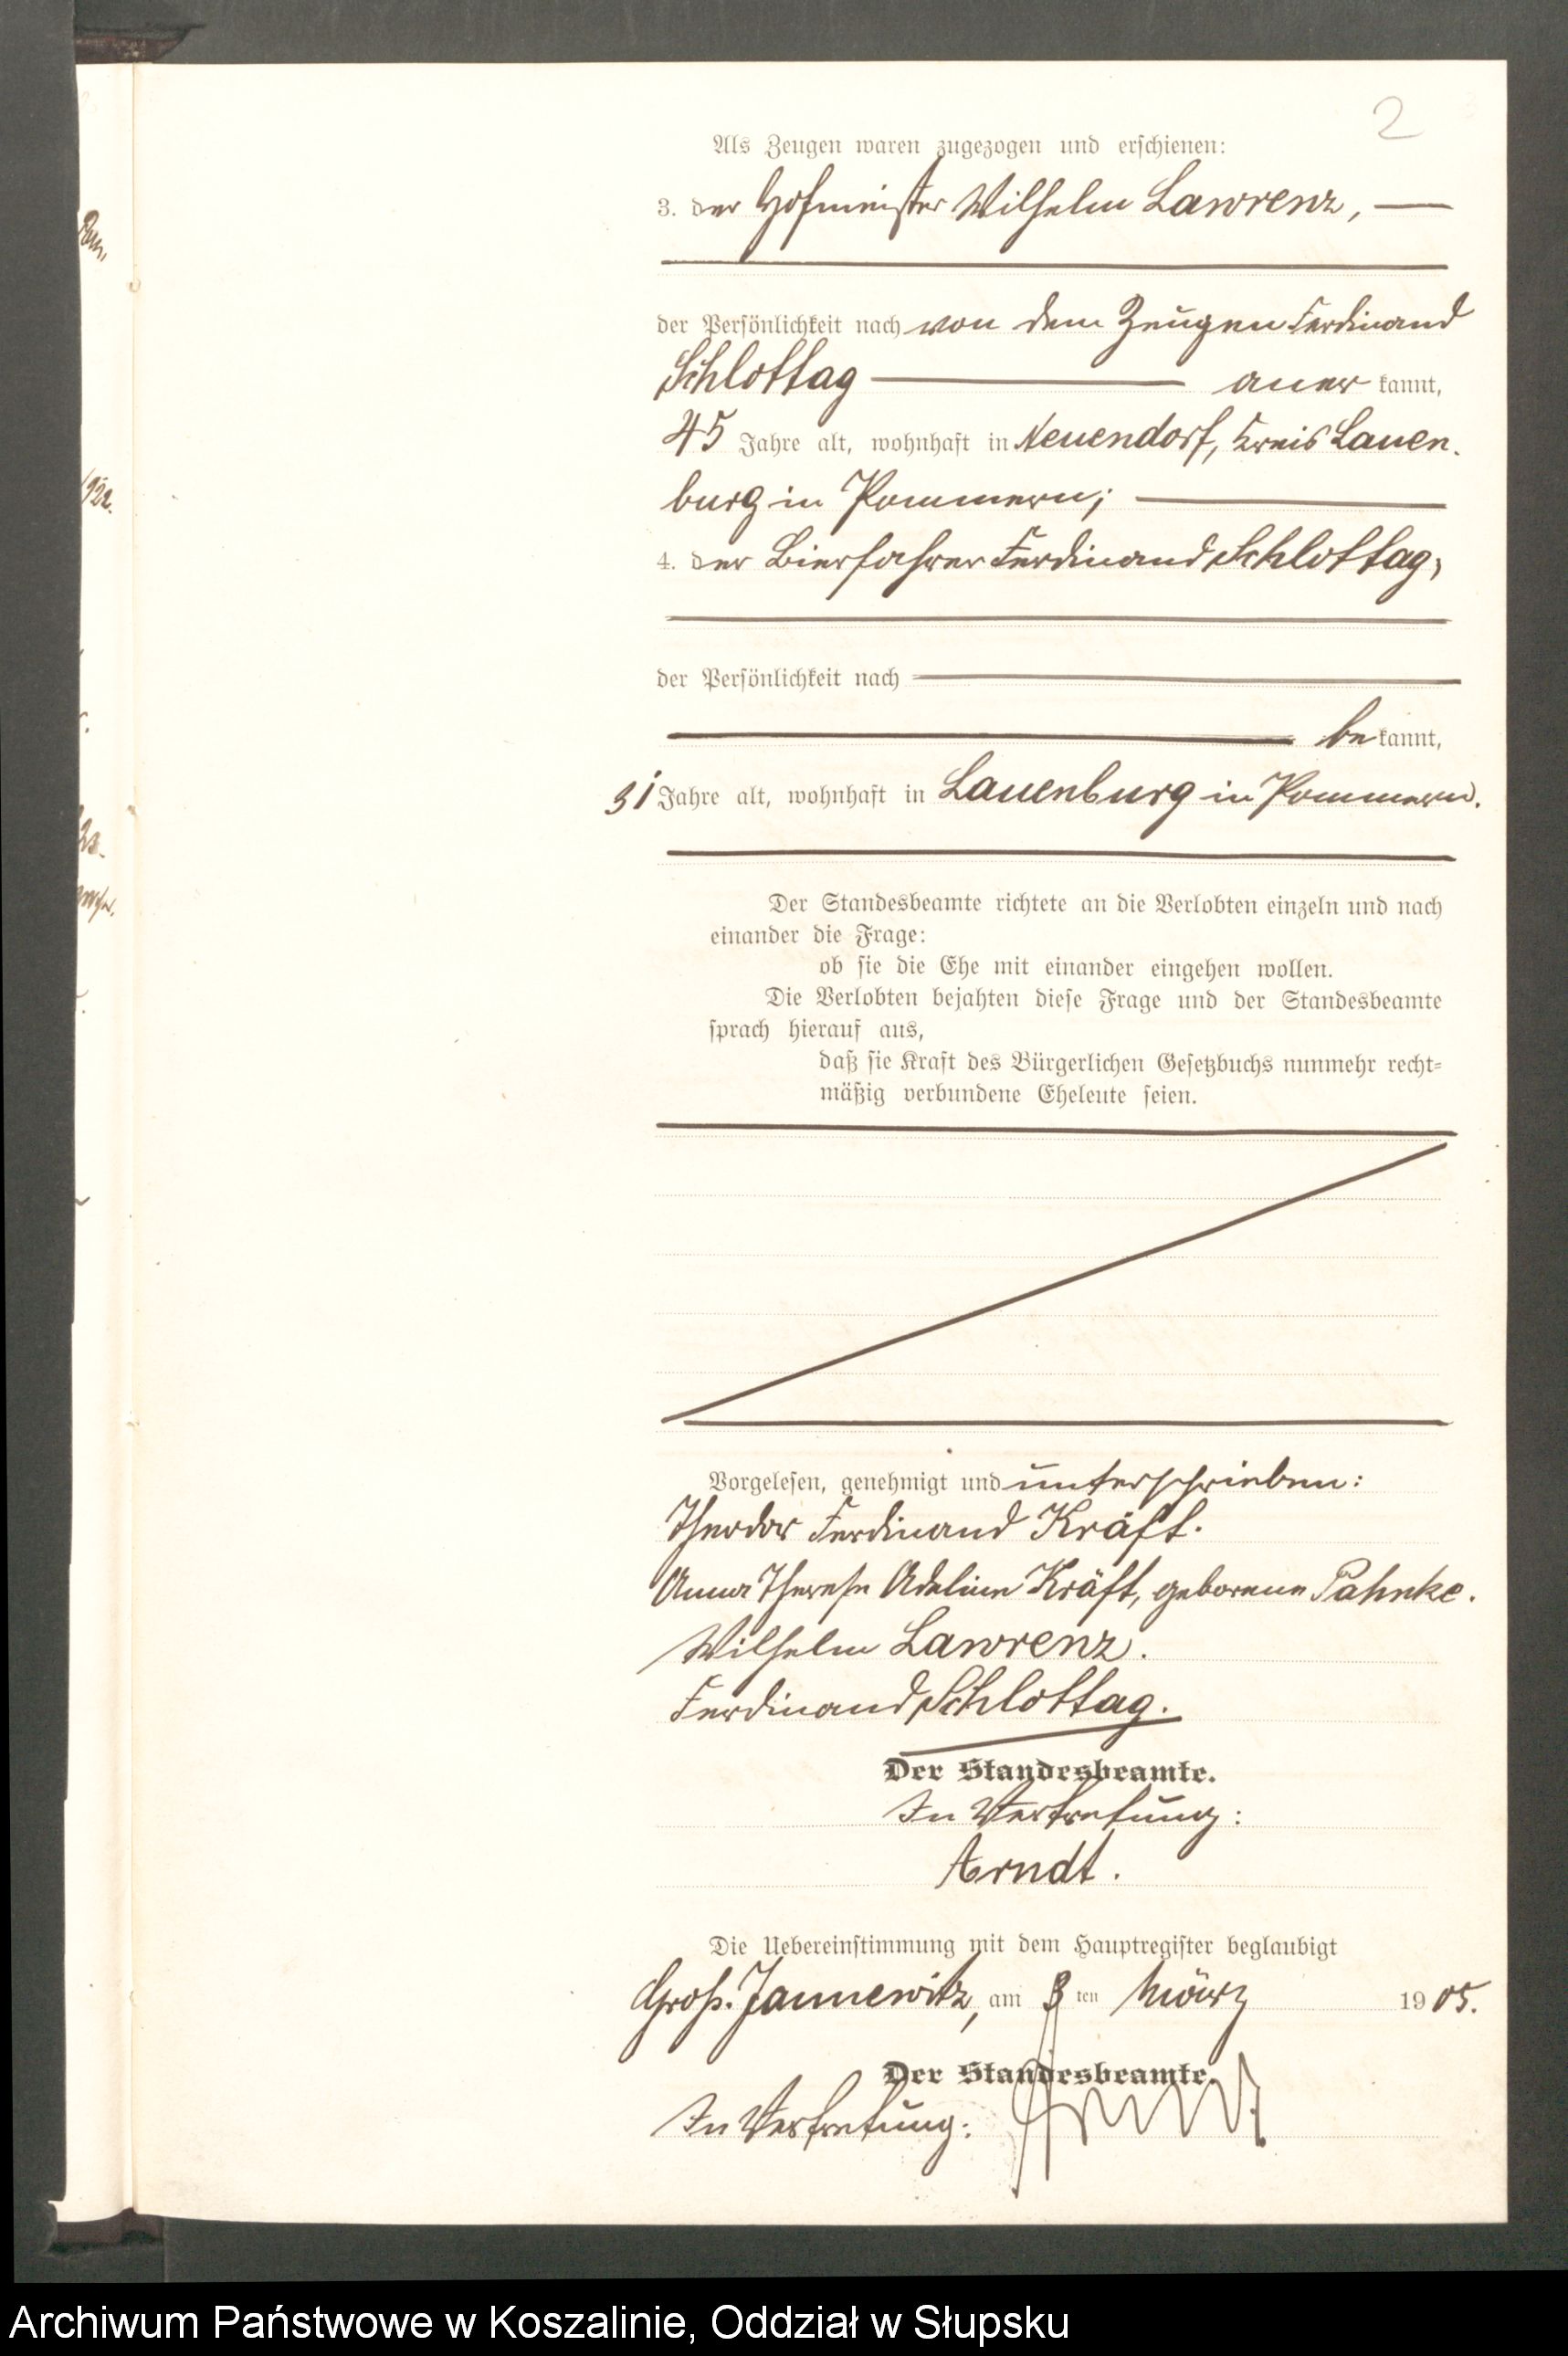 2
Als Zeugen waren zugezogen und erschienen:
3. der Hofmeister Wilhelm Lawrenz,
der Persönlichkeit nach von dem Zeugen Ferdinand
Schlottag anerkannt,
45 Jahre alt, wohnhaft in Neuendorf, Kreis Lauen-
burg in Pommern;
4. der Bierfahrer Ferdinand Schlottag,
der Persönlichkeit nach
bekannt,
31 Jahre alt, wohnhaft in Lauenburg in Pommern.
Der Standesbeamte richtete an die Verlobten einzeln und nach
einander die Frage:
ob sie die Ehe mit einander eingehen wollen.
Die Verlobten bejahten diese Frage und der Standesbeamte
sprach hierauf aus,
daß sie Kraft des Bürgerlichen Gesetzbuchs nunmehr recht-
mäßig verbundene Eheleute seien.
Vorgelesen, genehmigt und unterschrieben:
Theodor Ferdinand Kräft.
Anna Therese Adeline Kräft, geborene Pahnke.
Wilhelm Lawrenz.
Ferdinand Schlottag.
Der Standesbeamte.
In Vertretung:
Arndt.
Die Uebereinstimmung mit dem Hauptregister beglaubigt
Groß-Jannewitz, am 3ten März 1905.
Der Standesbeamte.
In Vertretung: Arndt.
Archiwum Państwowe w Koszalinie, Oddział w Słupsku